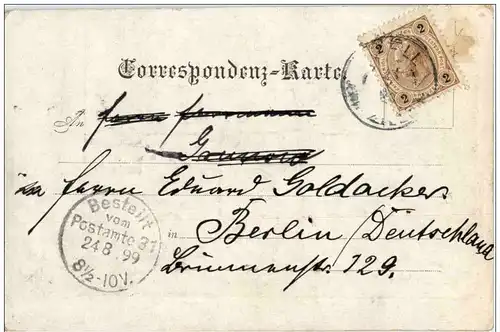 2 2
2 2
Correspondenz-Karte
An Herrn
Herrn Eduard Goldacker
Bestellt
vom
Postamte 31
24 8 99
8½-10V.
in Berlin / Deutschland
Brunnenstr. 129.